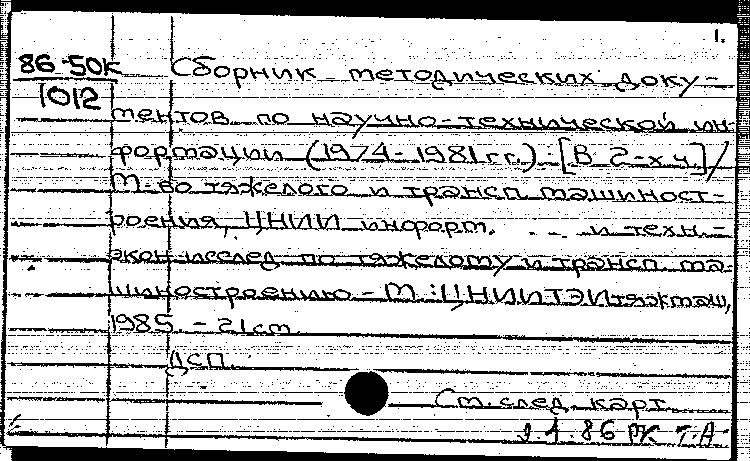 1.
86-50к Сборник методических доку-
1012
ментов по научно-технической ин-
формации (1974-1981 гг.). [В 2-х ч.] /
М-во тяжелого и трансп. машиност-
роения, ЦНИИ информ. ... и техн.-
экон. исслед. по тяжелому и трансп. ма-
шиностроению. - М.: ЦНИИТЭИтяжмаш,
1985. - 21 см.
ДСП.
См. след. карт.
2.4.86 РК Т.А-